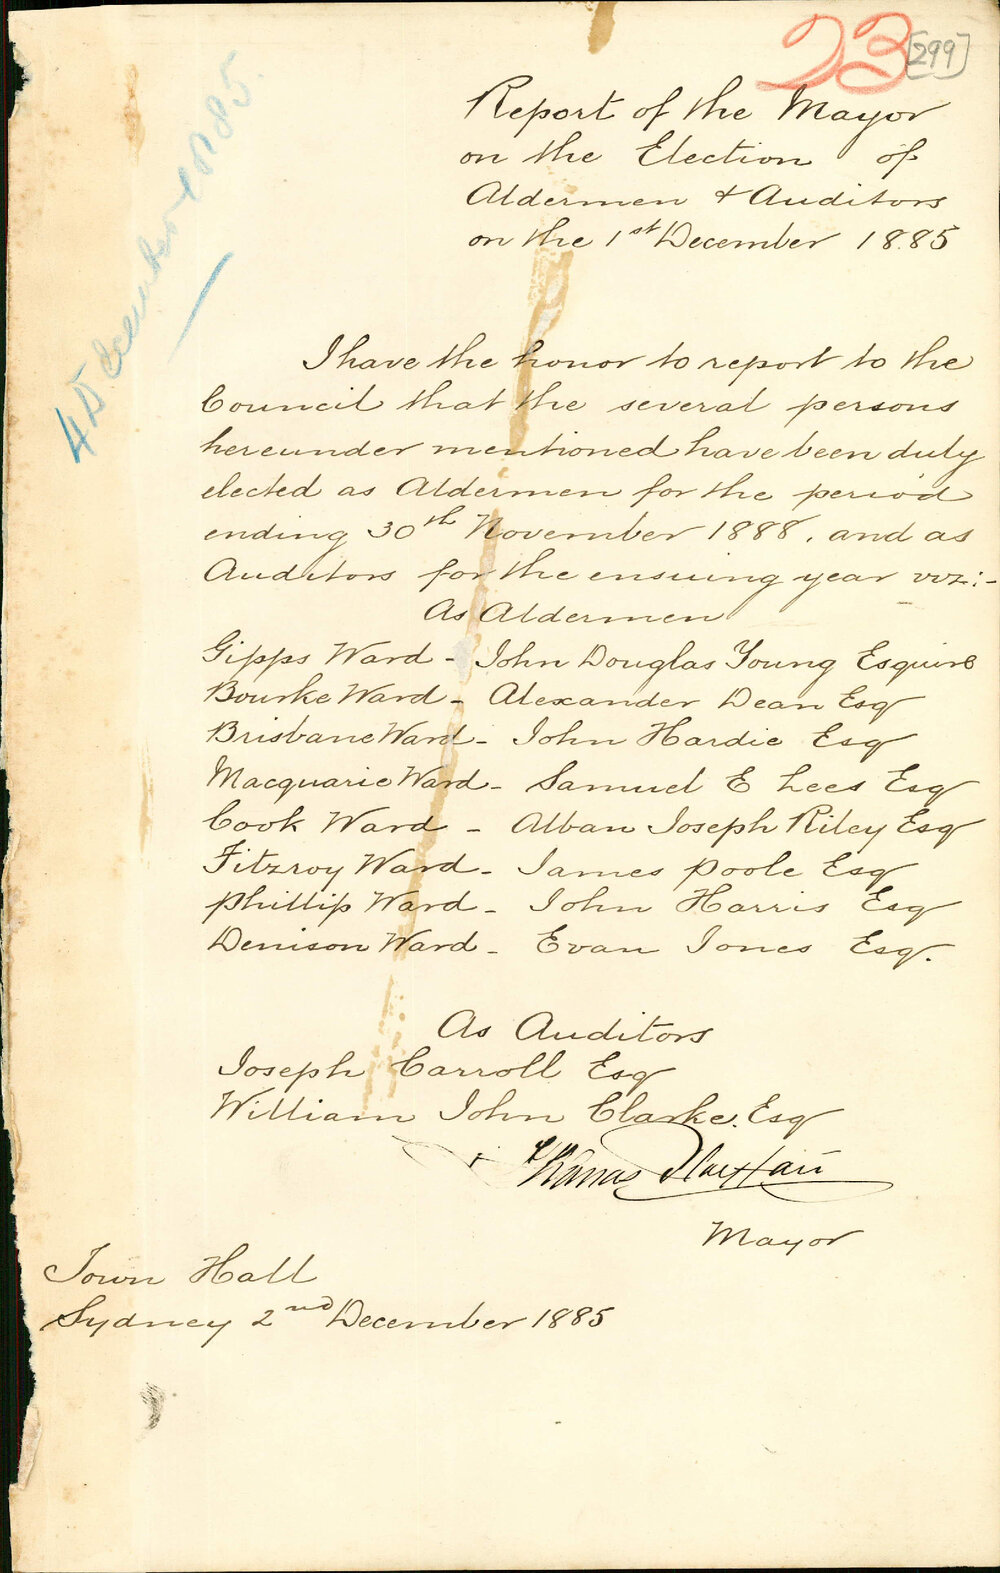 23
[299]
4 December 1885.
Report of the Mayor
on the Election of
Aldermen & Auditors
on the 1st December 1885
I have the honor to report to the
Council that the several persons
hereunder mentioned have been duly
elected as Aldermen for the period
ending 30th November 1888. and as
Auditors for the ensuing year viz:-
As Aldermen
Gipps Ward - John Douglas Young Esquire
Bourke Ward - Alexander Dean Esq
Brisbane Ward - John Hardie Esq
Macquarie Ward - Samuel E Lees Esq
Cook Ward - Alban Joseph Riley Esq
Fitzroy Ward - James Poole Esq
Phillip Ward - John Harris Esq
Denison Ward - Evan Jones Esq.
As Auditors
Joseph Carroll Esq
William John Clarke. Esq
Thomas Playfair
Mayor
Town Hall
Sydney 2nd December 1885